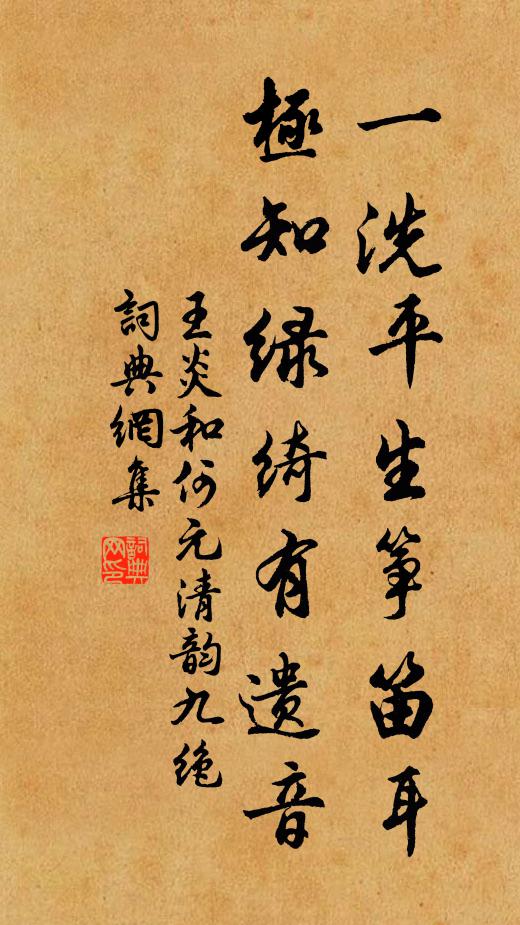 一洗平生筝笛耳
極知绿绮有遗音
王炎和何元清韵九绝
詞典網集
詞典网印